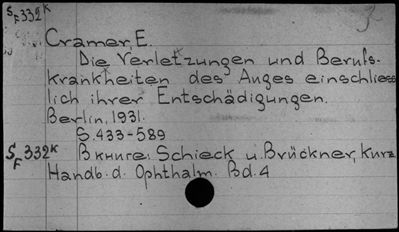 S/F 332 к
Cramer, E.
Die Verletzungen und Berufs-
krankheiten des Auges einschliess
lich ihrer Entschädigungen.
Berlin, 1931.
S. 433-589
S/F 332 к В книге: Schieck u. Brückner, Kurz
Handb. d. Ophthalm. Bd. 4